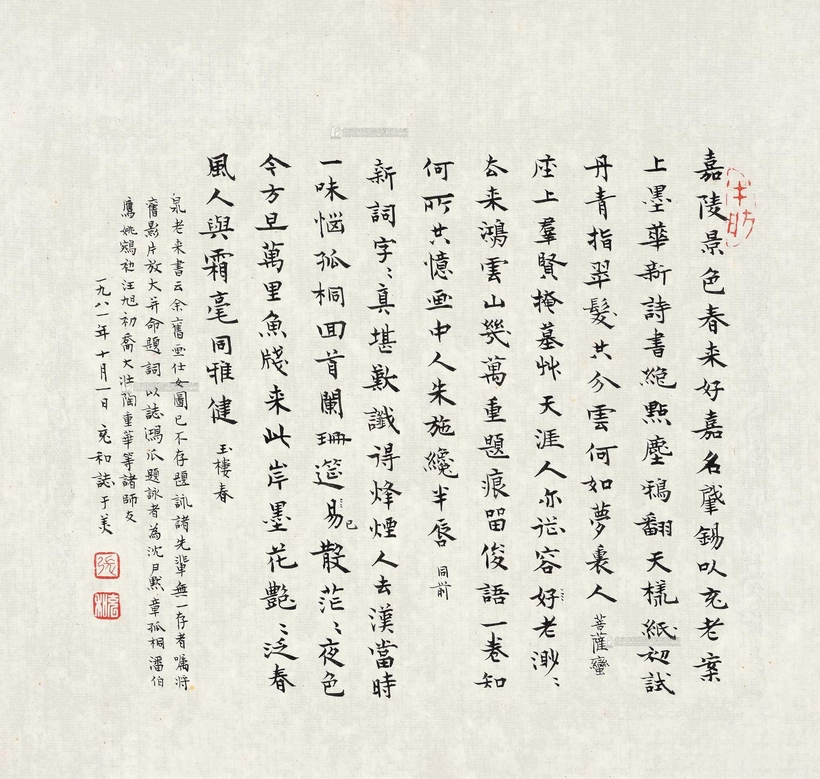 嘉陵景色春来好嘉名肇錫以充老案
上墨華新詩書絕點塵鴉翻天樣紙初試
丹青指翠髮共分雲何如夢裏人 菩薩蠻
座上羣賢掩墓艸天涯人亦從容好老渺〻
去来鴻雲山幾萬重題痕留俊語一卷知
何所共憶画中人朱施纔半唇 同前
新詞字〻真堪歎讖得烽煙人去漢當時
一味惱孤桐回首闌珊筵易已散茫〻夜色
今方旦萬里魚牋来此岸墨花艷〻泛春
風人與霜毫同雅健 玉樓春
老来書云余舊画仕女圖已不存題詠諸先輩無一存者囑将
舊影片放大并命題詞以誌鴻爪題詠者為沈尹默章孤桐潘伯
鷹姚鵷雛汪旭初喬大壮陶重華等諸師友
一九八一年十月一日充和誌于美
張